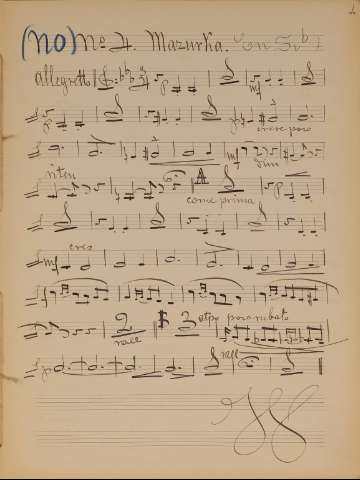 1
(no) Nº 4. Mazurka. En Si b
allegrett
p mf
p p cresc poco
mf dim
riten A
como prima p
cres
mf
2 B 2 atpo poco rubato
rall
p rall